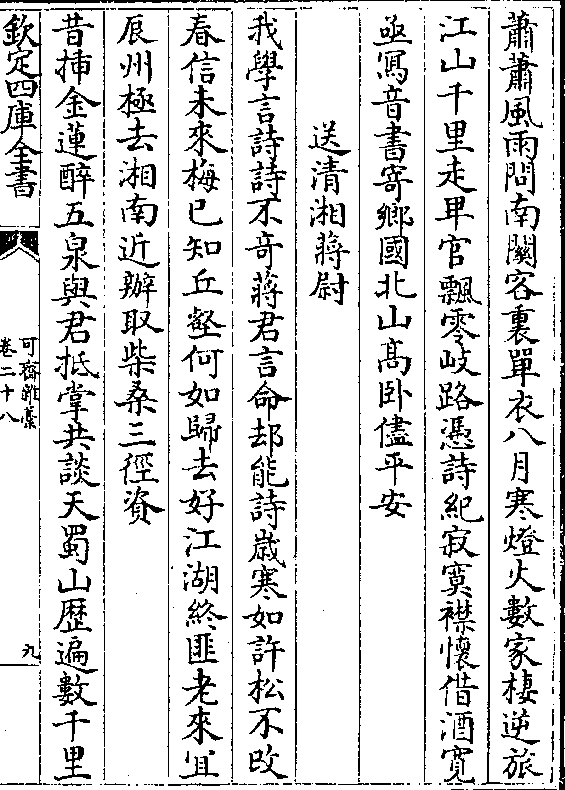 蕭蕭風雨問南闗客裏單衣八月寒燈火數家棲逆旅
江山千里走卑官飄零岐路憑詩紀寂寞襟懷借酒寛
亟寫音書寄鄉國北山髙卧儘平安
送清湘蔣尉
我學言詩詩不竒蔣君言命却能詩嵗寒如許松不改
春信未來梅已知丘壑何如歸去好江湖終匪老來宜
辰州極去湘南近辦取柴桑三徑資
昔挿金蓮醉五泉與君抵掌共談天蜀山歴遍數千里
欽定四庫全書
可齋雜藁
卷二十八
九